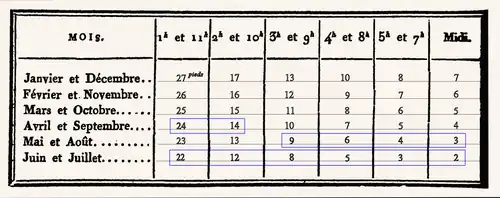 MOIS. 1ʰ et 11ʰ 2ʰ et 10ʰ 3ʰ et 9ʰ 4ʰ et 8ʰ 5ʰ et 7ʰ Midi.
Janvier et Décembre.. 27 pieds 17 13 10 8 7
Février et Novembre.. 26 16 12 9 7 6
Mars et Octobre..... 25 15 11 8 6 5
Avril et Septembre.... 24 14 10 7 5 4
Mai et Août......... 23 13 9 6 4 3
Juin et Juillet........ 22 12 8 5 3 2